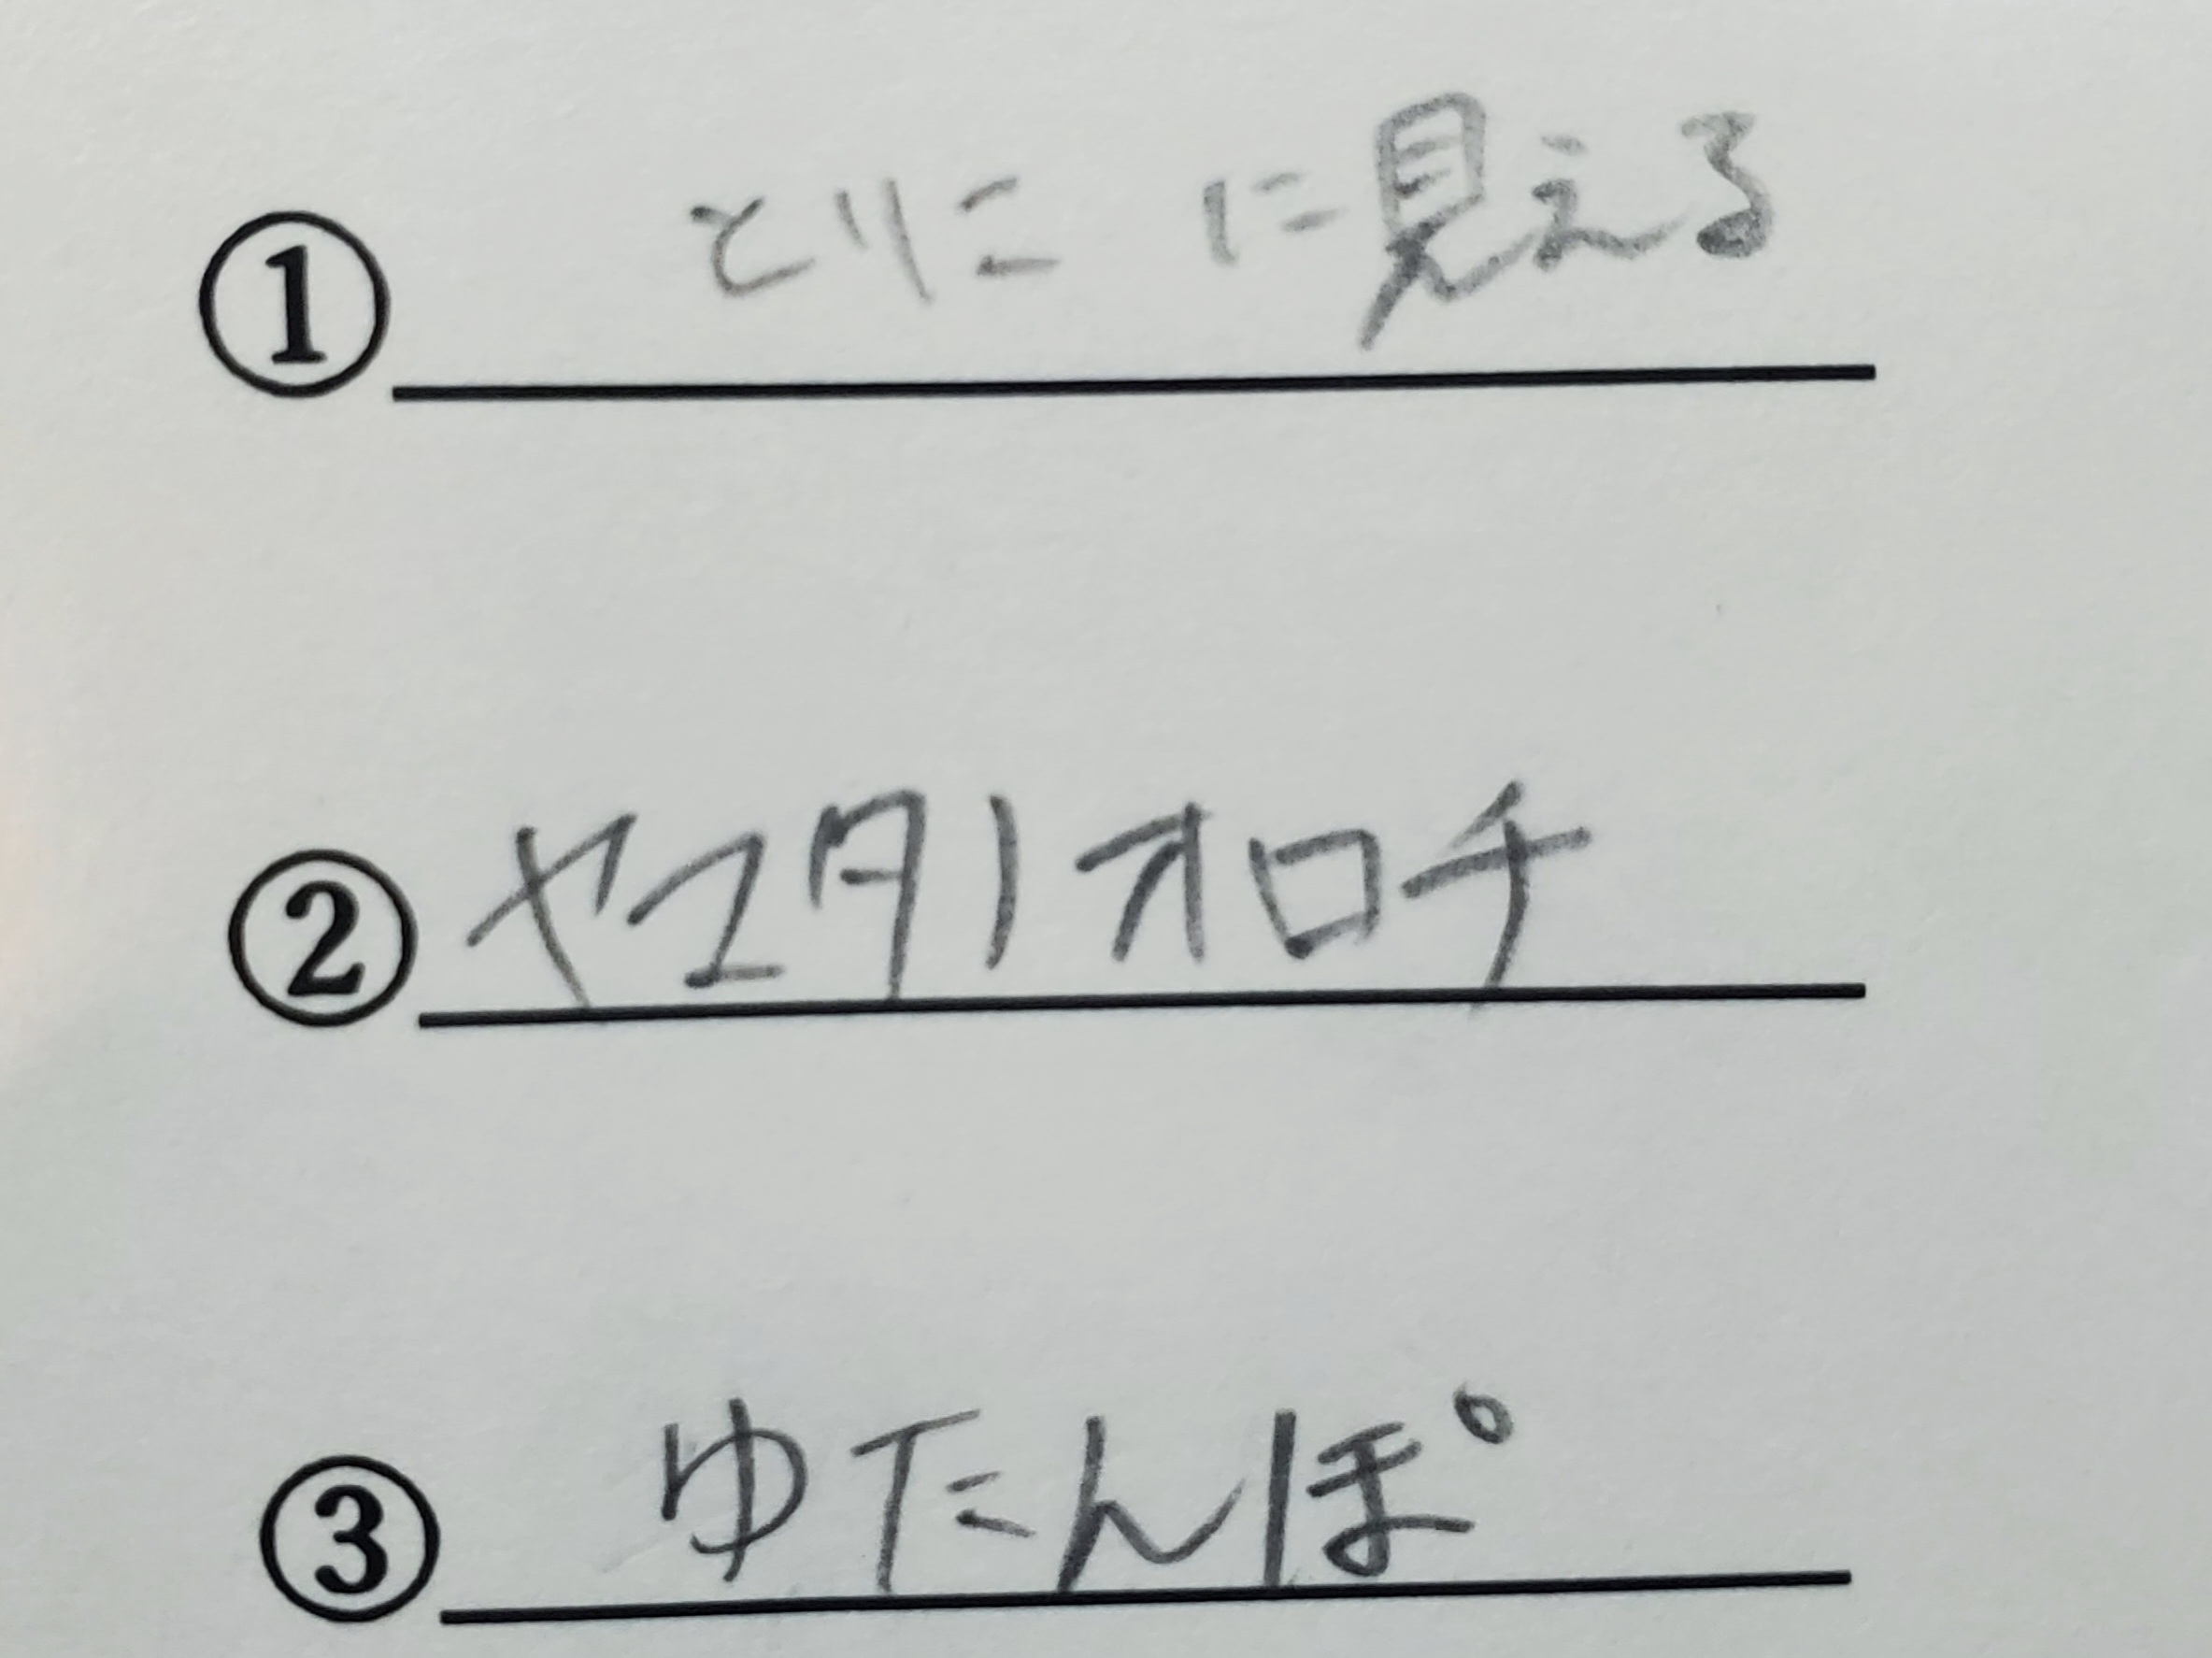 ① とりこ に見える
② ヤマタノオロチ
③ ゆたんぽ